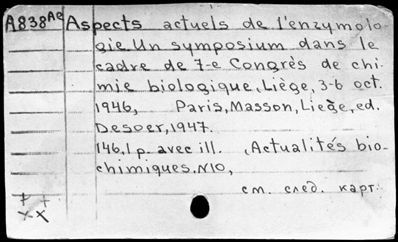 A838 Ac Aspects actuels de l'enzymolo-
gie. Un symposium dans le
cadre de 7-e Congrès de chi-
mie biologique, Liège, 3-6 oct.
1946, Paris, Masson, Liège, ed.
Desoer, 1947.
146,1 p. avec ill. , Actualités bio-
chimiques. N10,
см. след. карт.
++
xx